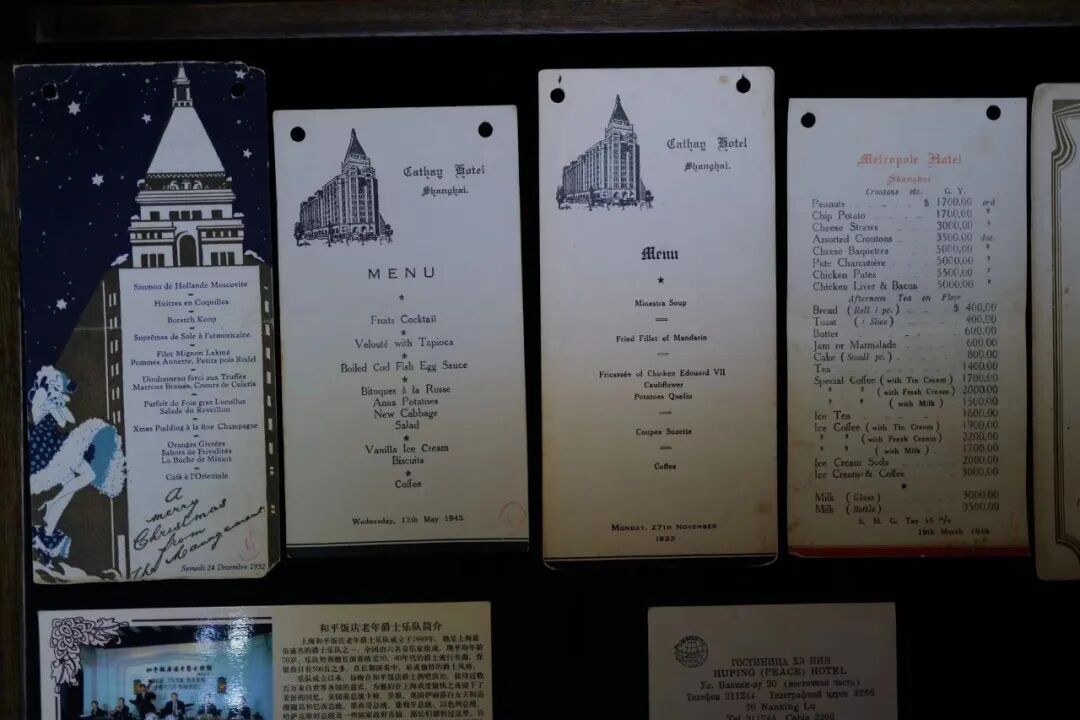 Saumon de Hollande Moscovite
Huitres en Coquilles
Borstch Koop
Suprêmes de Sole à l'armoricaine
Filet Mignon Lakmé
Pommes Annette. Petits pois Rodel
Dindonneau farci aux Truffes
Marrons Braisés, Coeurs de Celeris
Parfait de Foie gras Lucullus
Salade du Reveillon
Xmas Pudding à la fine Champagne
Oranges Givrées
Sabots de Frivolités
La Bûche de Minuit
Café à l'Orientale
A
merry
Christmas
from
The Manag
Samedi 24 Decembre 1932
Cathay Hotel
Shanghai.
MENU
Fruits Cocktail
Velouté with Tapioca
Boiled Cod Fish Egg Sauce
Bitoques à la Russe
Anna Potatoes
New Cabbage
Salad
Vanilla Ice Cream
Biscuits
Coffee
Wednesday, 12th May 1943.
Cathay Hotel
Shanghai.
Menu
Minestra Soup
Fried Fillet of Mandarin
Fricassée of Chicken Edouard VII
Cauliflower
Potatoes Quelin
Coupes Suzette
Coffee
MONDAY, 27TH NOVEMBER
1933
Metropole Hotel
Shanghai
Croutons etc. G. Y.
Peanuts $ 1700.00 ord
Chip Potato 1700.00 "
Cheese Straws 3000.00 "
Assorted Croutons 3500.00 doz.
Cheese Baquettes 5000.00 "
Pate Charcutière 5000.00 "
Chicken Pates 5500.00 "
Chicken Liver & Bacon 5000.00 "
Afternoon Tea on Floor
Bread (Roll 1 pc.) $ 400.00
Toast (1 Slice) 400.00
Butter 600.00
Jam or Marmalade 600.00
Cake (Small pc.) 800.00
Tea 1400.00
Special Coffee (with Tin Cream) 1700.00
" " (with Fresh Cream) 2000.00
" " (with Milk) 1500.00
Ice Tea 1600.00
Ice Coffee (with Tin Cream) 1900.00
" " (with Fresh Cream) 2200.00
" " (with Milk) 1700.00
Ice Cream Soda 2000.00
Ice Cream & Coffee 3000.00
Milk (Glass) 3000.00
Milk (Bottle) 3500.00
S. M. G. Tax 15 %
19th March 1949.
和平饭店老年爵士乐队简介
上海和平饭店老年爵士乐队成立于1980年，她是上海最
ГОСТИНИЦА ХЭ ПИН
HUPING (PEACE) HOTEL
Ул. Нанкин-лу 20 (восточная часть)
Телефон 211244 Телеграфный адрес 3266
20 Nanking Lu
Tel. 211244 Cable 3266